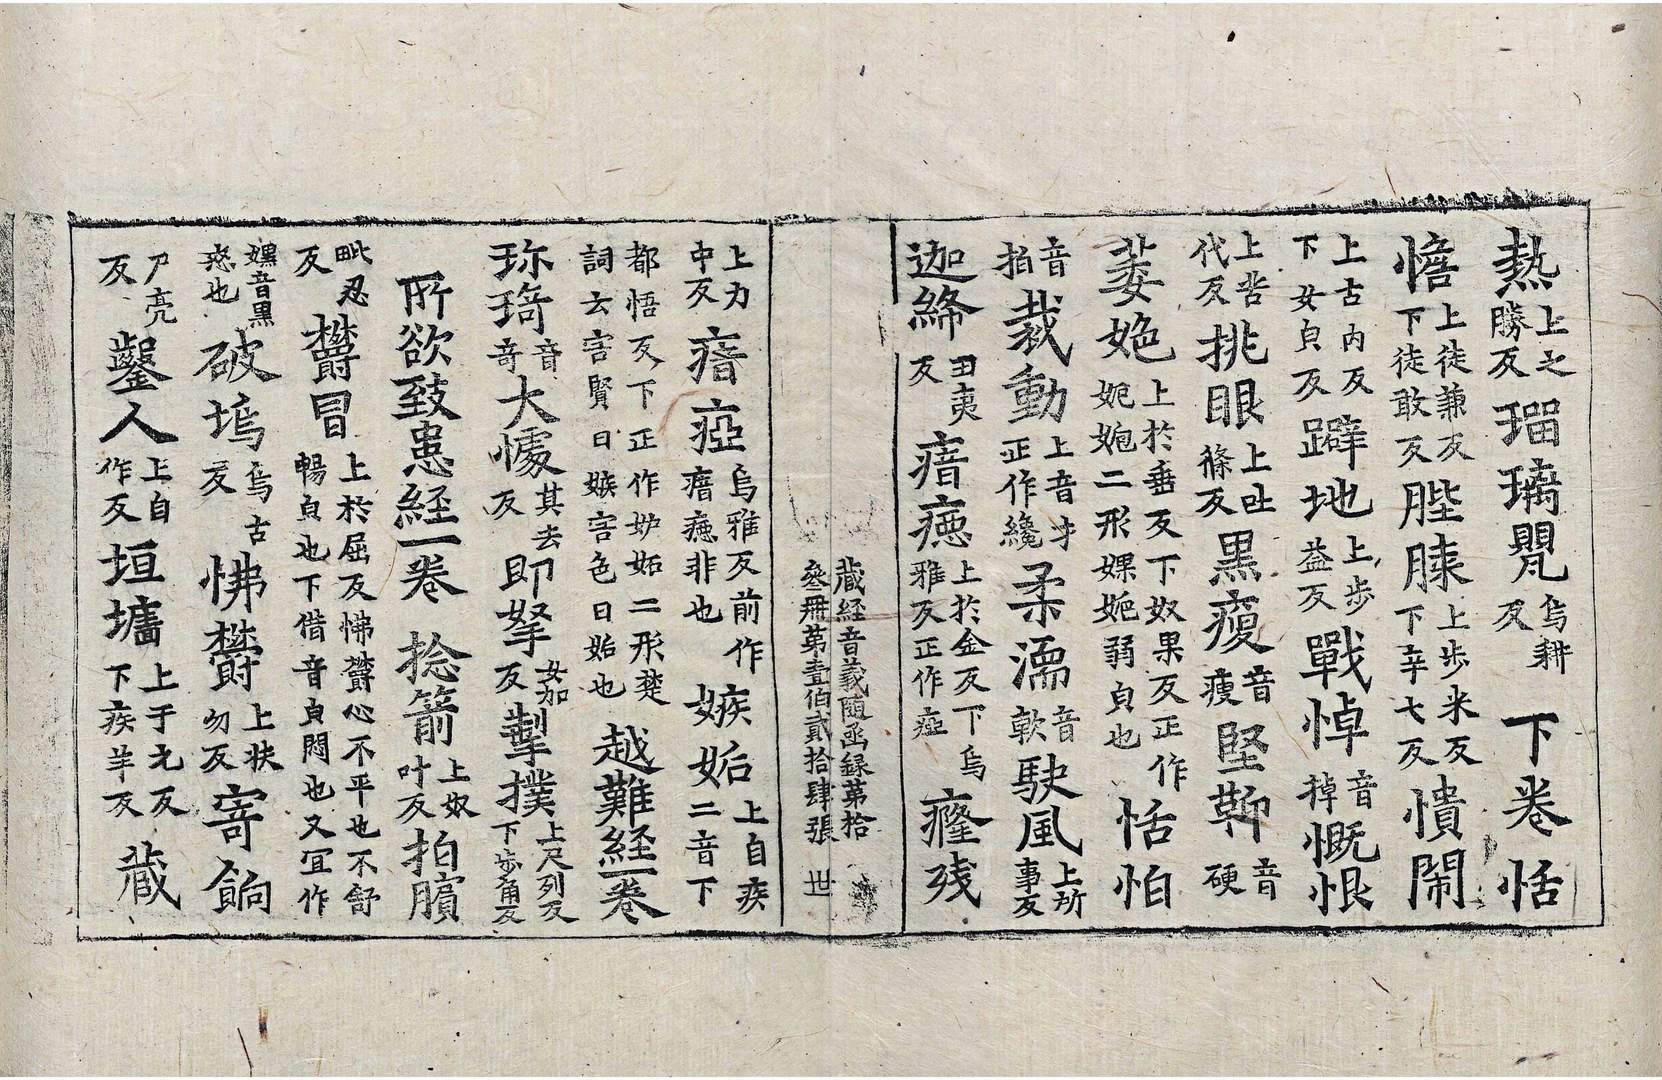 熱上之勝反瑠璃甖烏耕反 下卷恬
憺上徒兼反下徒敢反胜膝上步米反下辛七反憒閙
上古內反下女皃反躃地上步益反戰悼音掉慨恨
上苦代反挑眼上吐條反黒瘦音瘦堅鞕音硬
萎㛂上於垂反下奴果反正作婗婐二形婐㛂弱皃也恬怕
音拍裁動上音才正作纔柔濡音軟駛風上所事反
迦絺丑夷反瘖瘂上於金反下烏雅反正作瘂癃残
藏経音義隨函録第拾
叄冊第壹伯貳拾肆張 世
上力中反瘖瘂烏雅反前作瘖瘂非也嫉妬上自疾二音下
都悟反下正作妒妬二形楚詞云害賢曰嫉害色曰妬也越難経一卷
珎琦音奇大懅其去反即拏女加反掣撲上尺列反下步角反
所欲致患経一卷 捻箭上奴叶反拍臏
毗忍反欝冒上於屈反怫欝心不平也不舒暢皃也下借音皃悶也又冝作
嫼音黒惑也破塢烏古反怫欝上扶勿反寄餉
尸亮反鑿人上自作反垣墻上于元反下疾羊反藏